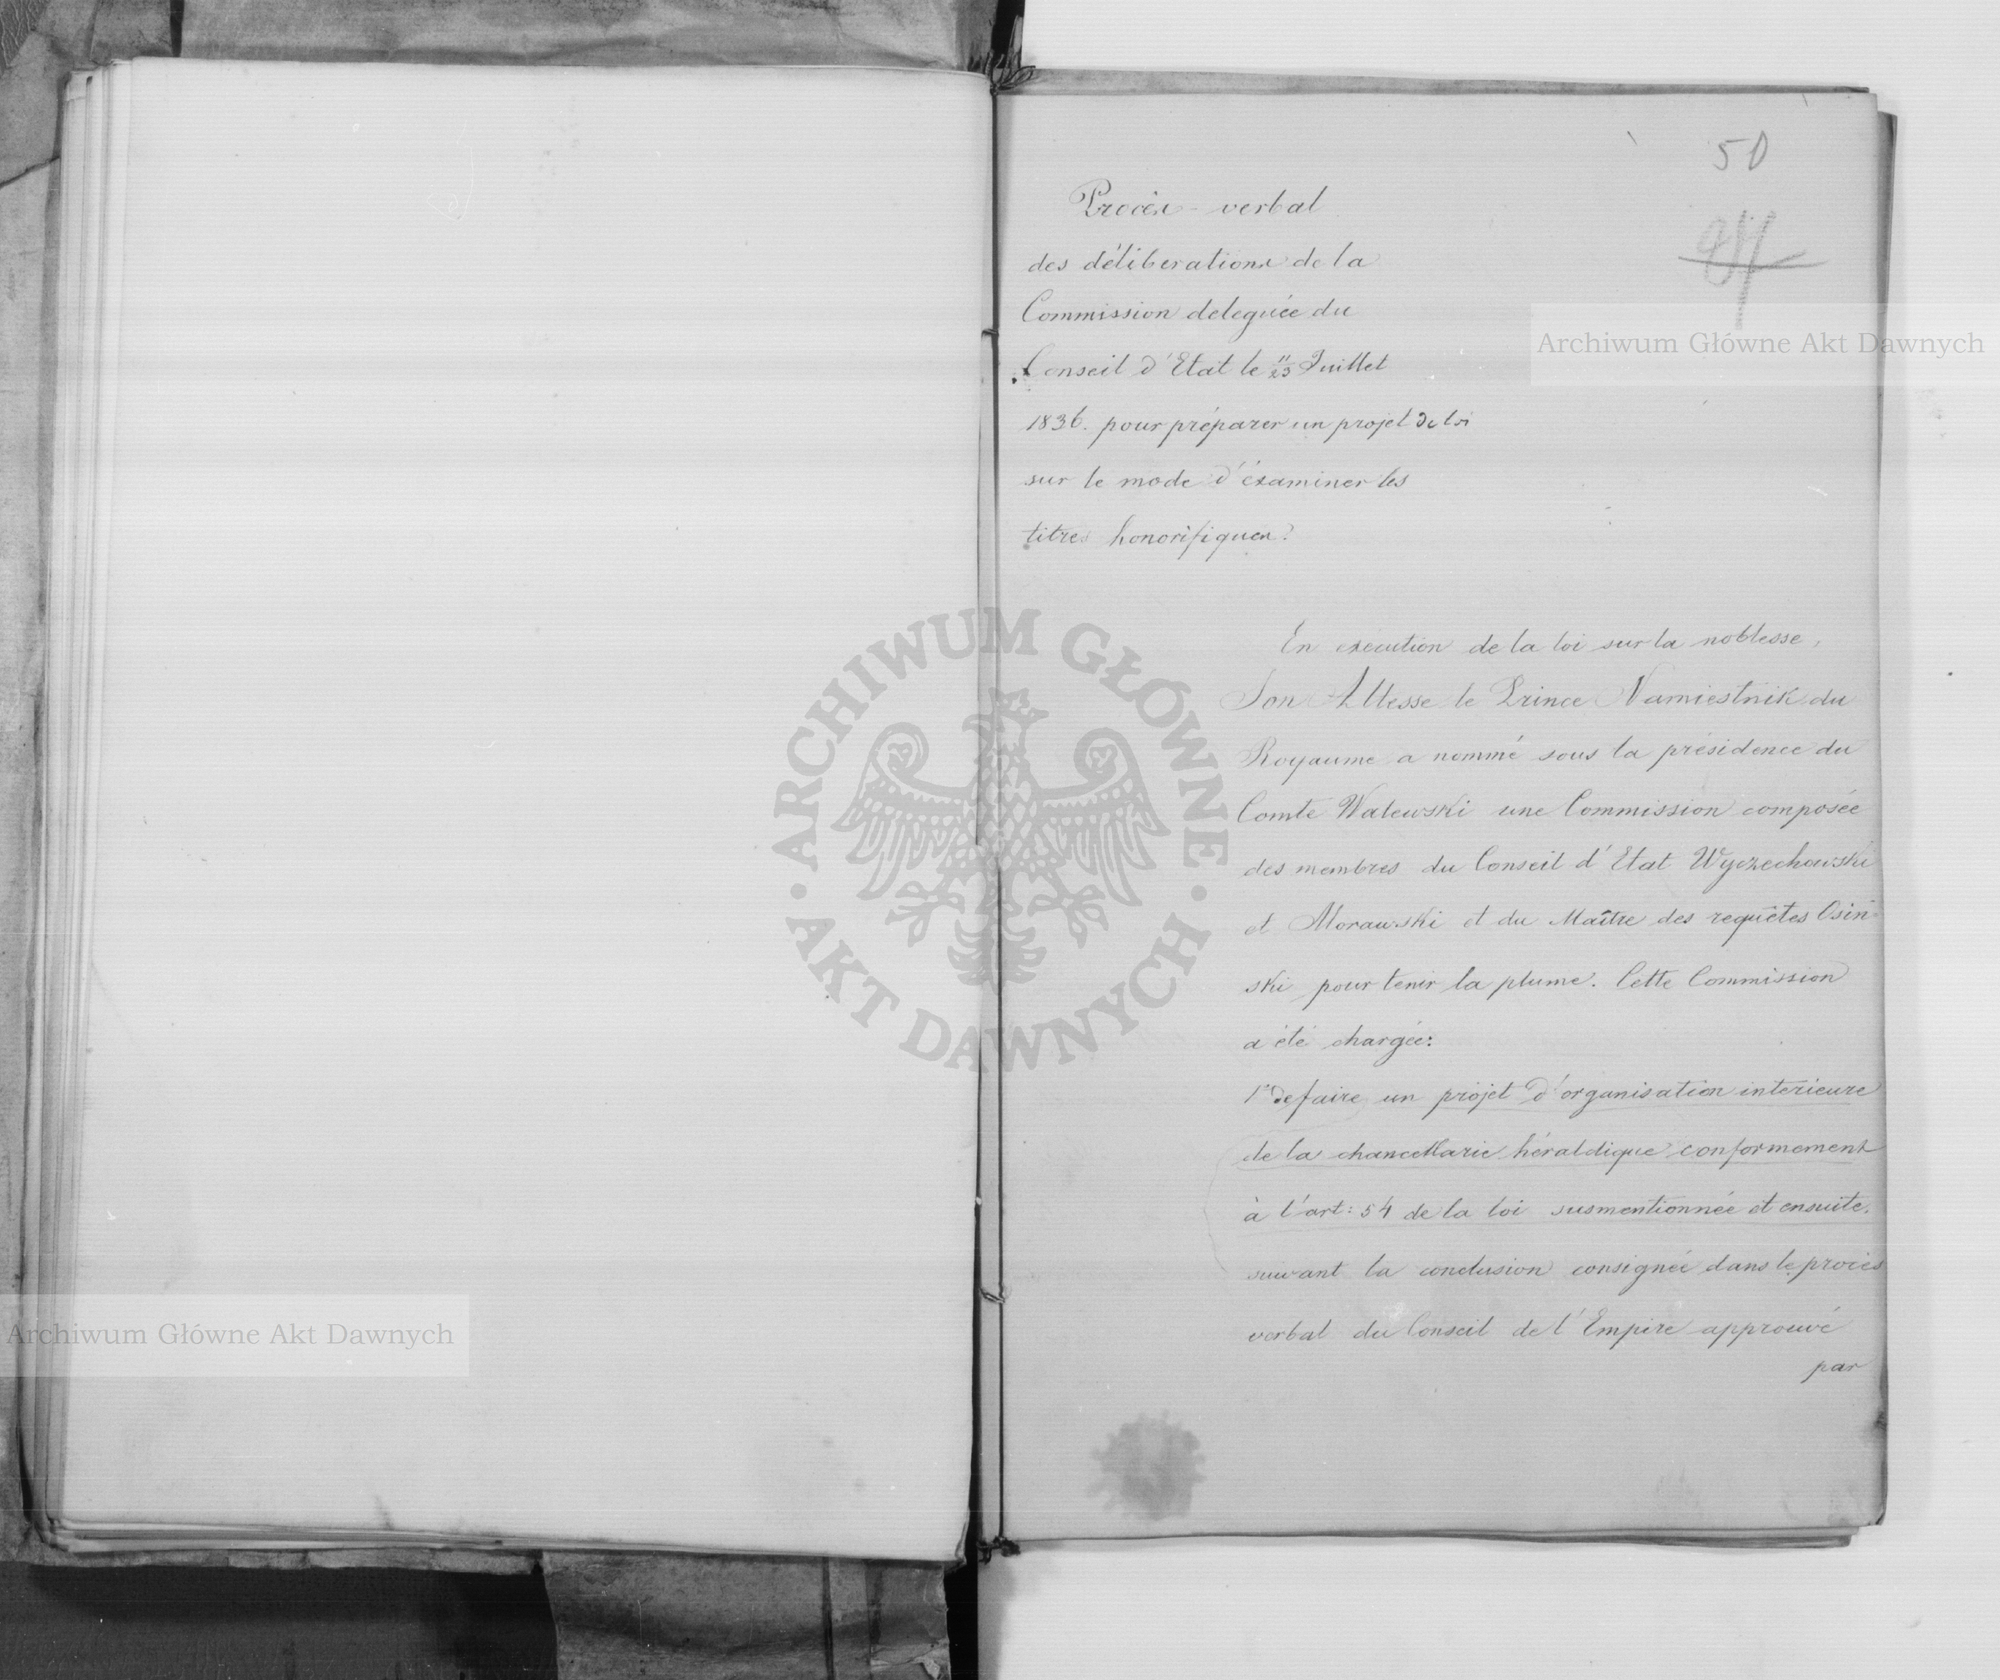 50
Procès-verbal
des déliberations de la
Commission deleguée du
Conseil d'Etat le 11/23 Juillet
1836. pour préparer un projet de loi
sur le mode d'éxaminer les
titres honorifiques.
En execution de la loi sur la noblesse,
Son Altesse le Prince Namiestnik du
Royaume a nommé sous la présidence du
Comte Walewski une Commission composée
des membres du Conseil d'Etat Wyczechowski
et Morawski et du Maître des requêtes Osin-
ski pour tenir la plume. Cette Commission
a été chargée:
1° de faire un projet d'organisation interieure
de la chancellarie héraldique conformement
à l'art: 54 de la loi susmentionnée et ensuite
suivant la conclusion consignée dans le procès
verbal du Conseil de l'Empire approuvé
par
Archiwum Główne Akt Dawnych
Archiwum Główne Akt Dawnych
ARCHIWUM GŁÓWNE AKT DAWNYCH